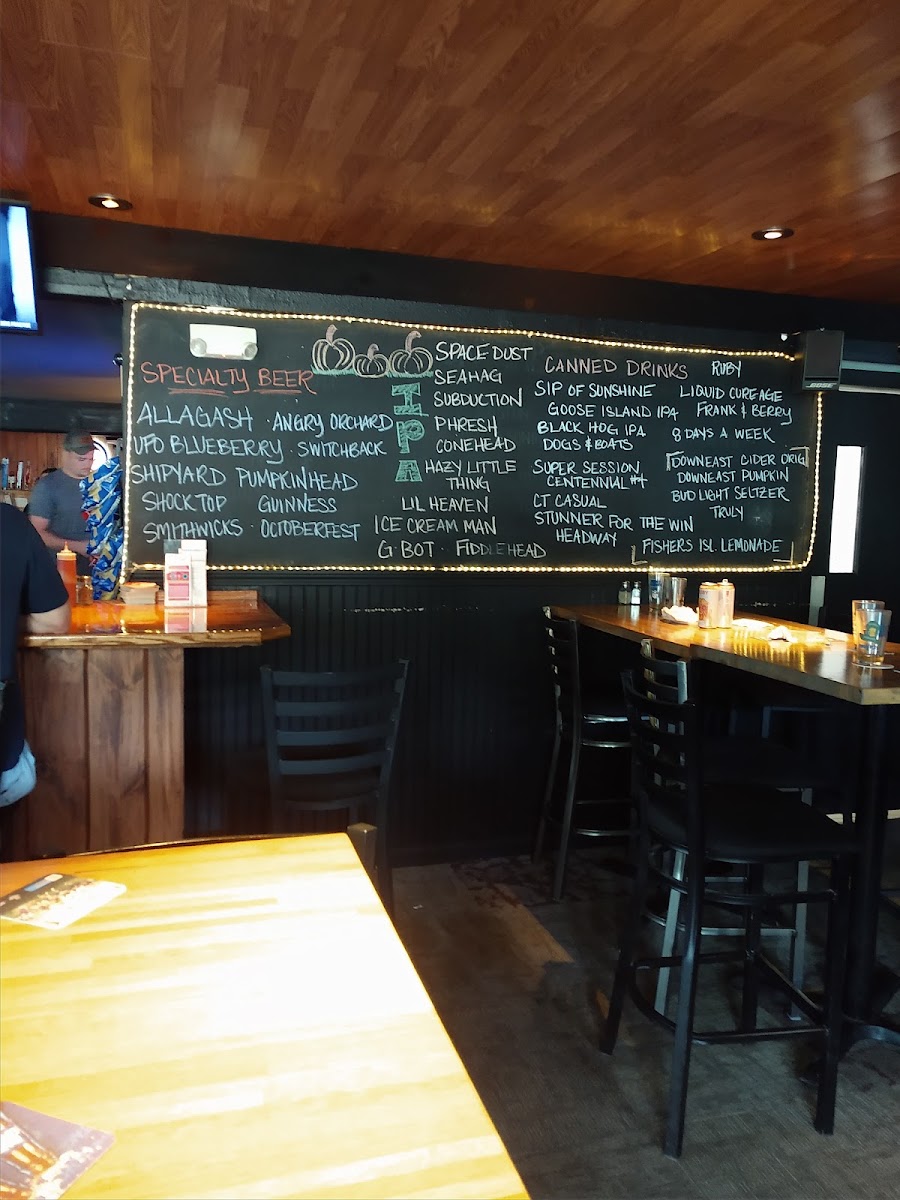 SPECIALTY BEER
ALLAGASH · ANGRY ORCHARD
UFO BLUEBERRY · SWITCHBACK
SHIPYARD PUMPKINHEAD
SHOCKTOP GUINNESS
SMITHWICKS · OCTOBERFEST
IPA
SPACE DUST
SEAHAG
SUBDUCTION
PHRESH
CONEHEAD
HAZY LITTLE
THING
LIL HEAVEN
ICE CREAM MAN
G·BOT · FIDDLEHEAD
CANNED DRINKS
SIP OF SUNSHINE
GOOSE ISLAND IPA
BLACK HOG IPA
DOGS & BOATS
SUPER SESSION
CENTENNIAL #4
CT CASUAL
STUNNER FOR THE WIN
HEADWAY
RUBY
LIQUID CUREAGE
FRANK & BERRY
8 DAYS A WEEK
DOWNEAST CIDER ORIG
DOWNEAST PUMPKIN
BUD LIGHT SELTZER
TRULY
FISHERS ISL. LEMONADE
BOSE